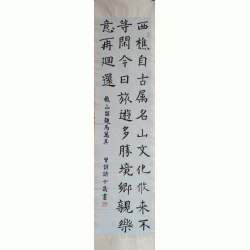 西樵自古属名山文化悠来不
等闲今日旅遊多勝境鄉親樂
意再迴還
樵山留題馬萬其
曾詩詩十歲書